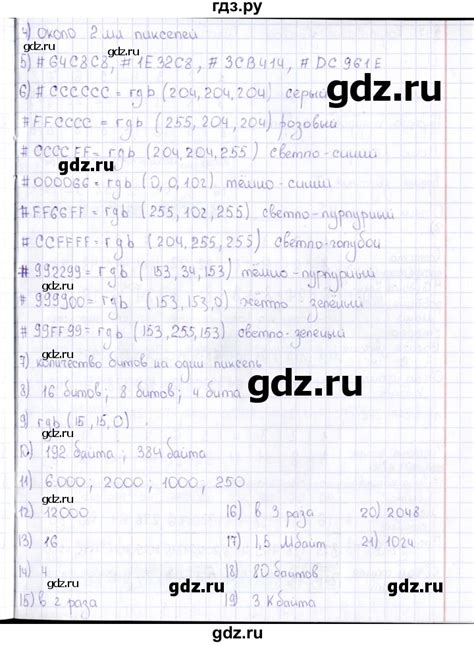 гдз.ру
4) около 2 млн пикселей
5) #64C8C8, #1E32C8, #3CB414, #DC961E
6) #CCCCCC = rgb (204, 204, 204) серый
gdz.ru
#FFCCCC = rgb (255, 204, 204) розовый
#CCCCFF = rgb (204, 204, 255) светло-синий
gdz.ru
#000066 = rgb (0, 0, 102) тёмно-синий
#FF66FF = rgb (255, 102, 255) светло-пурпурный
#CCFFFF = rgb (204, 255, 255) светло-голубой
gdz.ru
#992299 = rgb (153, 34, 153) тёмно-пурпурный
#999900 = rgb (153, 153, 0) желто-зеленый
#99FF99 = rgb (153, 255, 153) светло-зеленый
7) количество битов на один пиксель
8) 16 битов; 8 битов; 4 бита
gdz.ru
9) rgb (15, 15, 0)
10) 192 байта; 384 байта
11) 6.000; 2000; 1000; 250
12) 12000 16) в 3 раза 20) 2048
13) 16 17) 1,5 Мбайт 21) 1024
14) 4 18) 80 байтов
gdz.ru gdz.ru
15) в 2 раза 19) 3 Кбайта
гдз.ру